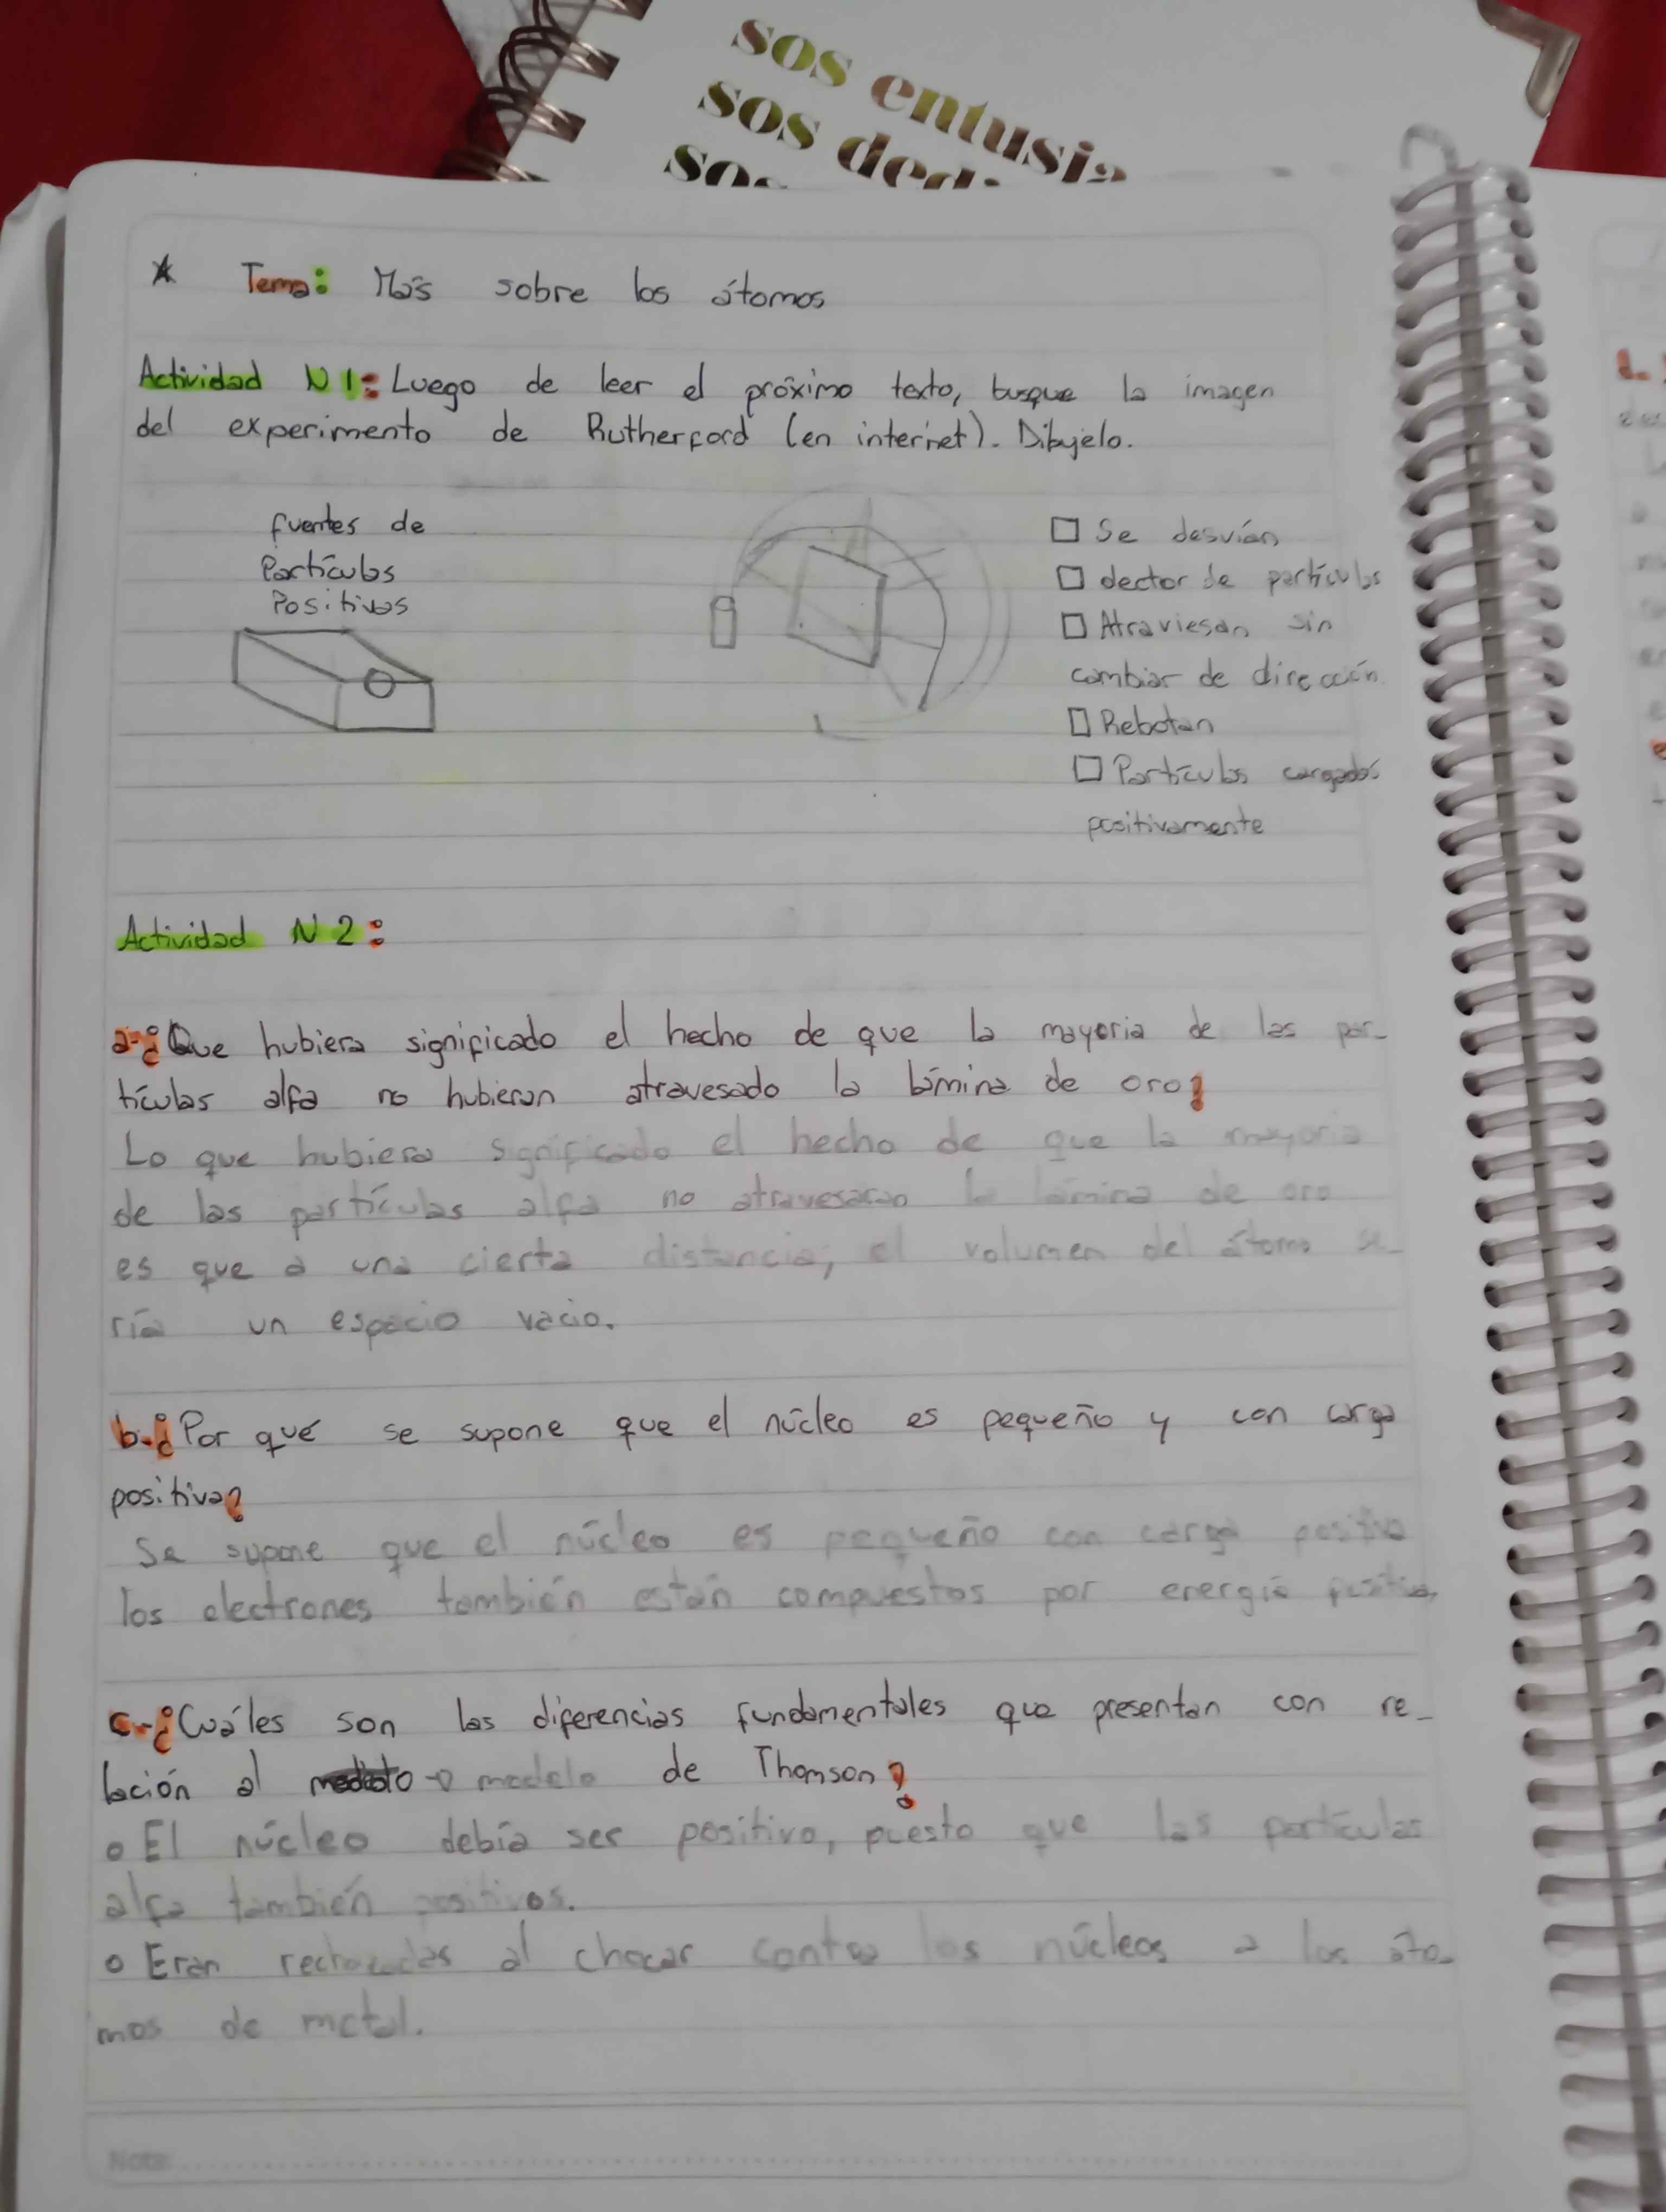 sos entusia
sos ded
so
* Tema: Más sobre los átomos
Actividad N 1: Luego de leer el próximo texto, busque la imagen
del experimento de Rutherford (en internet). Dibujelo.
fuentes de
Partículas
Positivas
□ Se desvían
□ dector de partículas
□ Atraviesan sin
cambiar de dirección.
□ Rebotan
□ Partículas cargadas
positivamente
Actividad N 2:
a-¿Que hubiera significado el hecho de que la mayoria de las par-
tículas alfa no hubieran atravesado la lámina de oro?
Lo que hubiera significado el hecho de que la mayoria
de las partículas alfa no atravesaran la lámina de oro
es que a una cierta distancia, el volumen del átomo se-
ría un espacio vacio.
b-¿Por qué se supone que el núcleo es pequeño y con carga
positiva?
Se supone que el núcleo es pequeño con carga positiva
los electrones también están compuestos por energía positiva.
c-¿Cuáles son las diferencias fundamentales que presentan con re-
lación al modelo de Thomson?
o El núcleo debía ser positivo, puesto que las partículas
alfa también positivas.
o Eran rechazadas al chocar contra los núcleos a los áto-
mos de metal.
Nota: